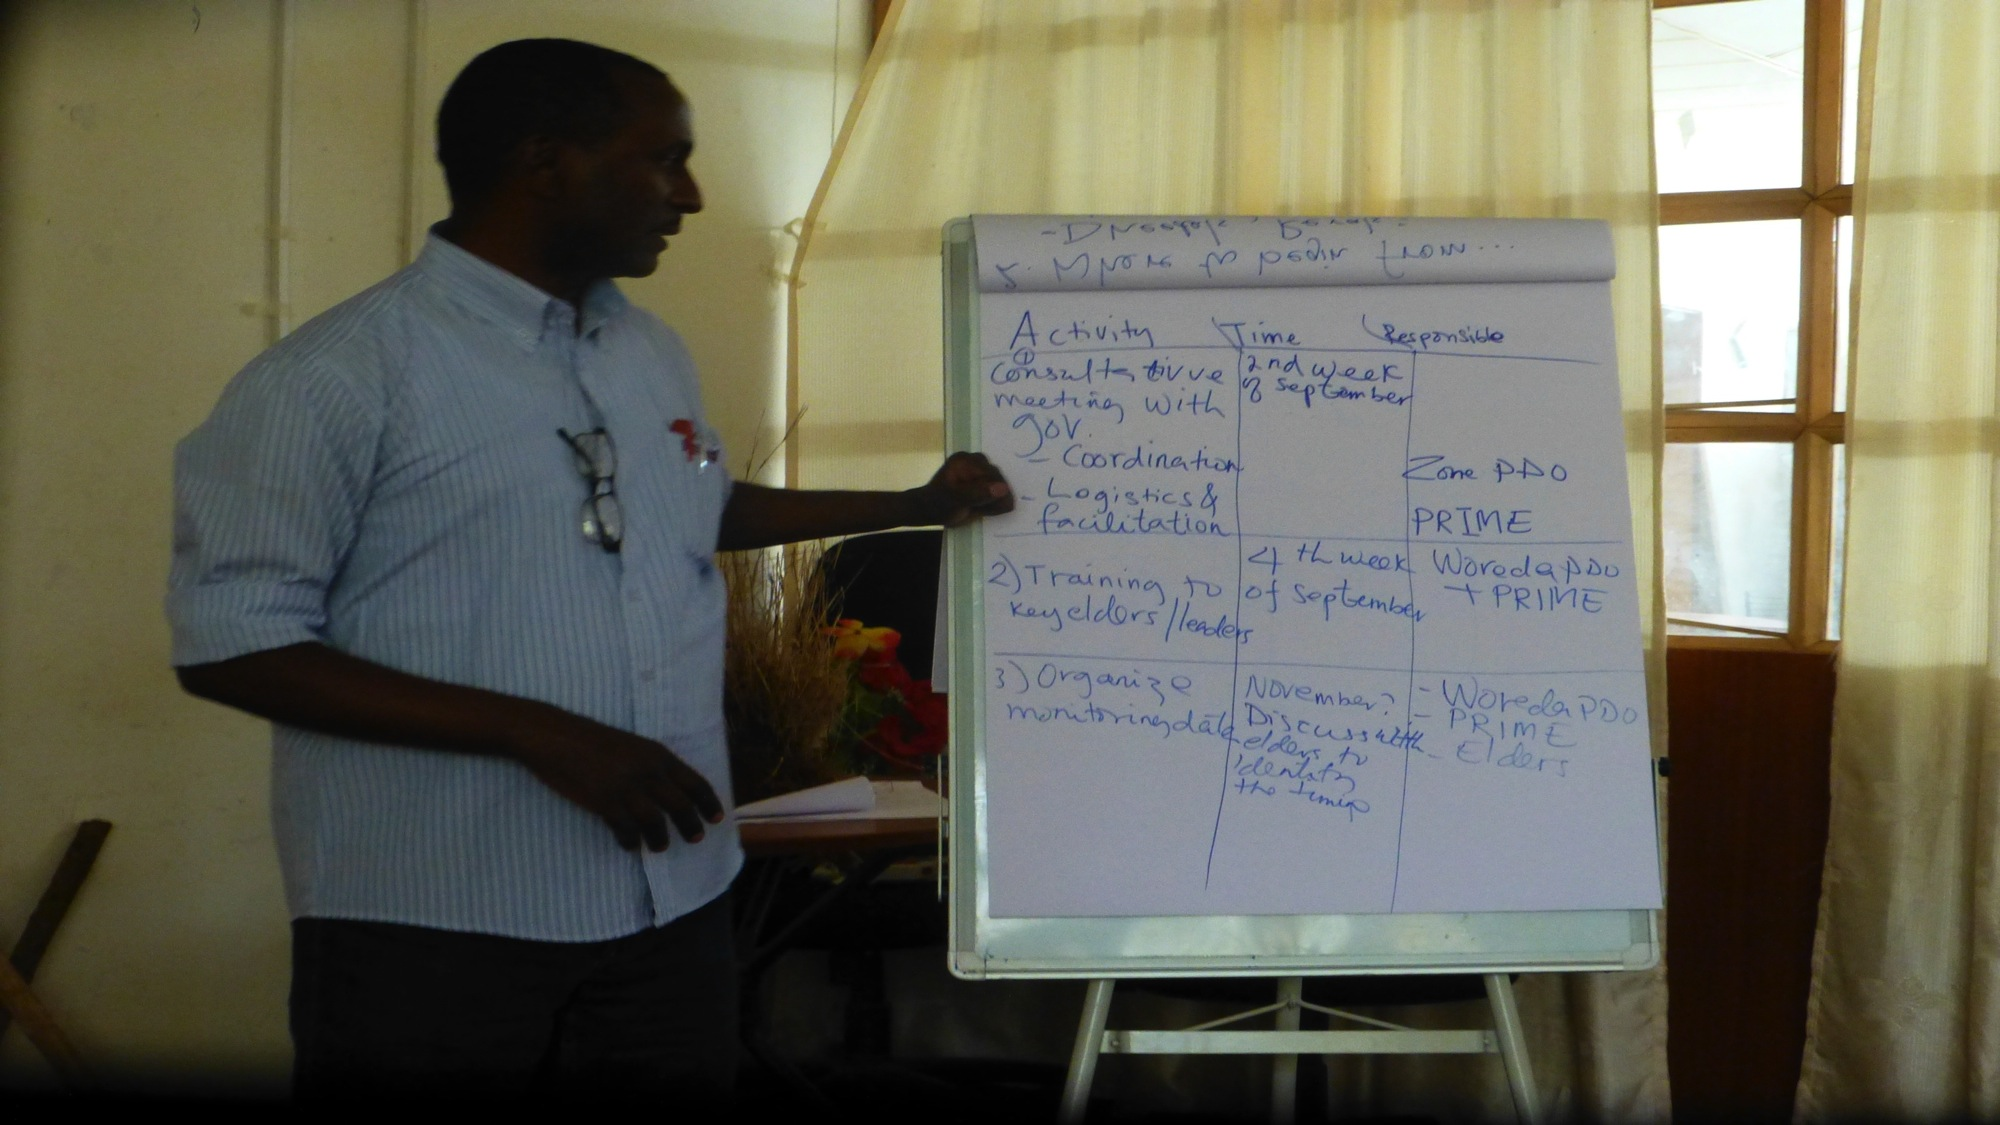 begin from...
Activity Time Responsible
①
Consultative
meeting with
gov.
- Coordination
- Logistics &
facilitation
2nd week
of september
Zone PDO
PRIME
2) Training to
key elders/leaders
4th week
of september
Woreda PDO
+ PRIME
3) Organize
monitoring data
November?
Discuss with
elders to
identify
the timing
- Woreda PDO
- PRIME
- Elders